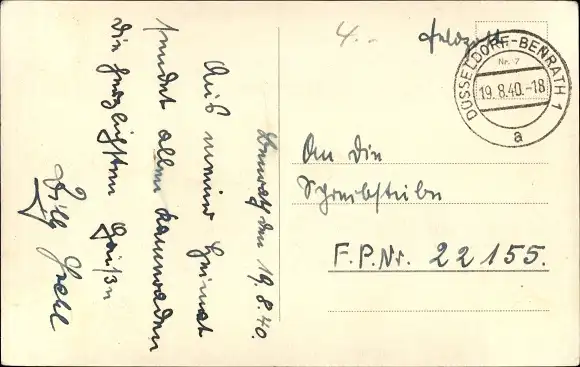 4.-
Feldpost
DÜSSELDORF-BENRATH 1
Nr. 7
19.8.40.-18
a
An die
Schreibstube
F.P.Nr. 22155.
Benrath den 19.8.40.
Aus meiner Heimat
sendet allen Kameraden
die herzlichsten Grüße
Willy